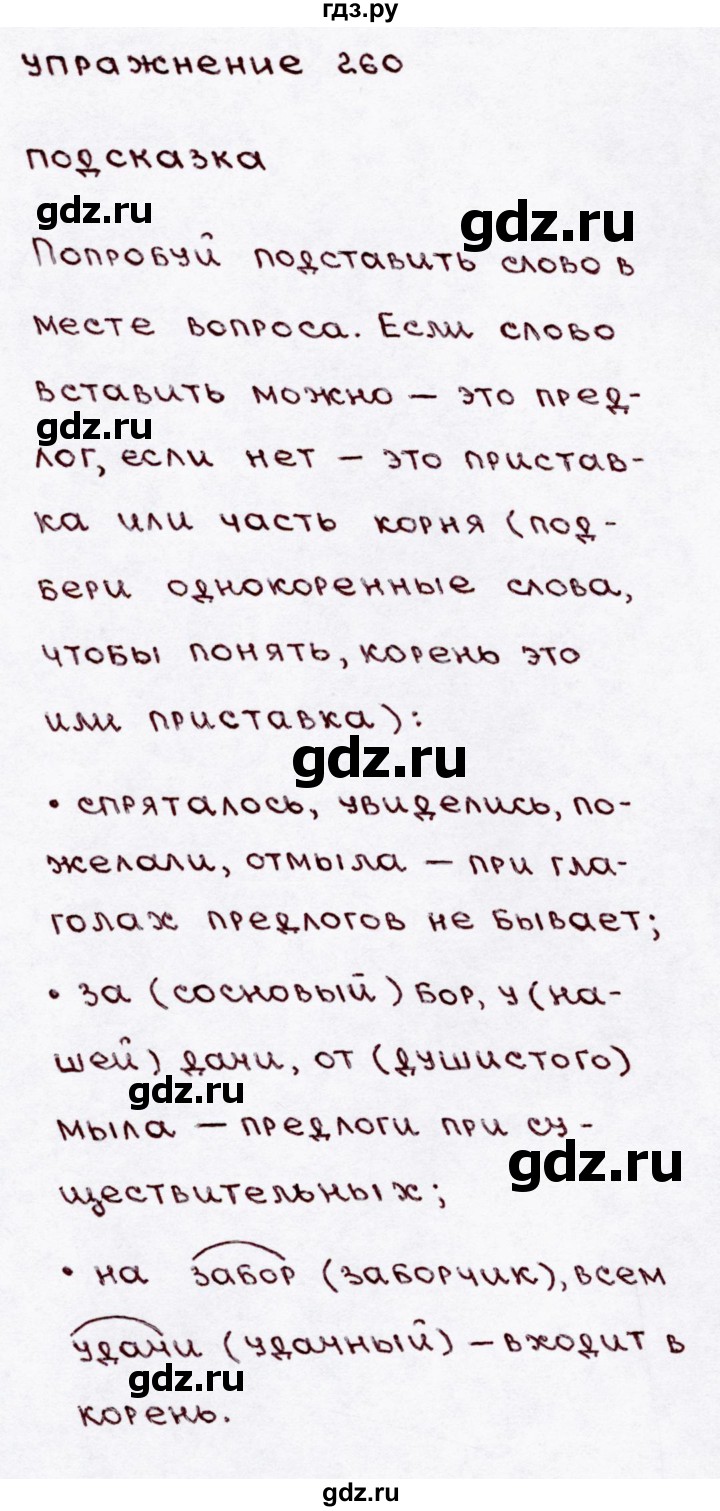 гдз.ру
упражнение 260
подсказка
gdz.ru
gdz.ru
Попробуй подставить слово в
месте вопроса. Если слово
вставить можно — это пред-
gdz.ru
лог, если нет — это пристав-
ка или часть корня (под-
бери однокоренные слова,
чтобы понять, корень это
или приставка):
gdz.ru
• спряталось, увиделись, по-
желали, отмыла — при гла-
голах предлогов не бывает;
• за (сосновый) бор, у (на-
шей) дачи, от (душистого)
gdz.ru
мыла — предлоги при су-
gdz.ru
ществительных;
• на забор (заборчик), всем
удачи (удачный) — входит в
gdz.ru
корень.
gdz.ru